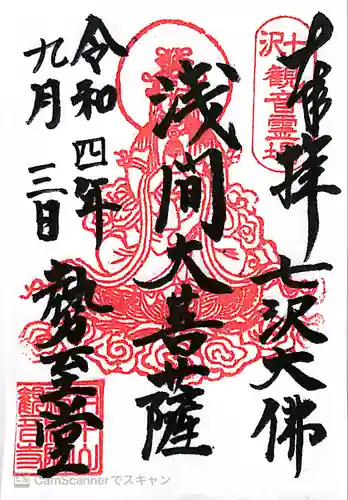 奉拝
七沢大佛
浅間大菩薩
令和四年
九月三日
勢至堂
七沢
観音霊場
CamScannerでスキャン